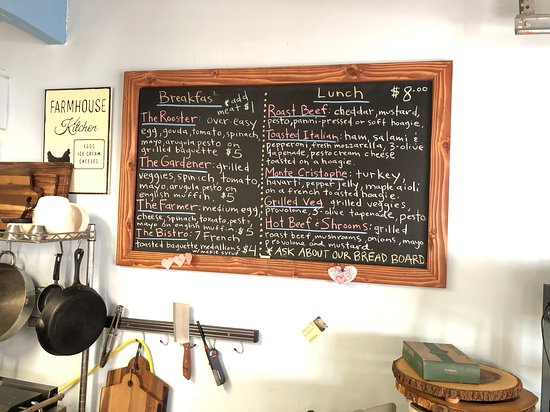 FARMHOUSE
Kitchen
EGGS
ICE CREAM
CHEESES
Breakfast
*add
meat $1
The Rooster: over-easy
egg, gouda, tomato, spinach,
mayo, arugula pesto on
grilled baguette $5
The Gardener: grilled
veggies, spinich, tomato,
mayo, arugula pesto on
english muffin $5
The Farmer: medium egg,
cheese, spinach, tomato, pesto
mayo on english muffin $5
The Bistro: 7 French
toasted baguette medallions
w/maple syrup $4
Lunch $8.00
Roast Beef: cheddar, mustard,
pesto, panini-pressed or soft hoagie.
Toasted Italian: ham, salami &
pepperoni, fresh mozzarella, 3-olive
tapenade, pesto cream cheese
toasted on a hoagie.
Monte Cristophe: turkey,
havarti, pepper jelly, maple aioli
on a french toasted hoagie.
Grilled Veg: grilled veggies
provolone, 3-olive tapenade, pesto
Hot Beef & Shrooms: grilled
roast beef, mushrooms, onions, mayo
provolone and mustard
*ASK ABOUT OUR BREAD BOARD